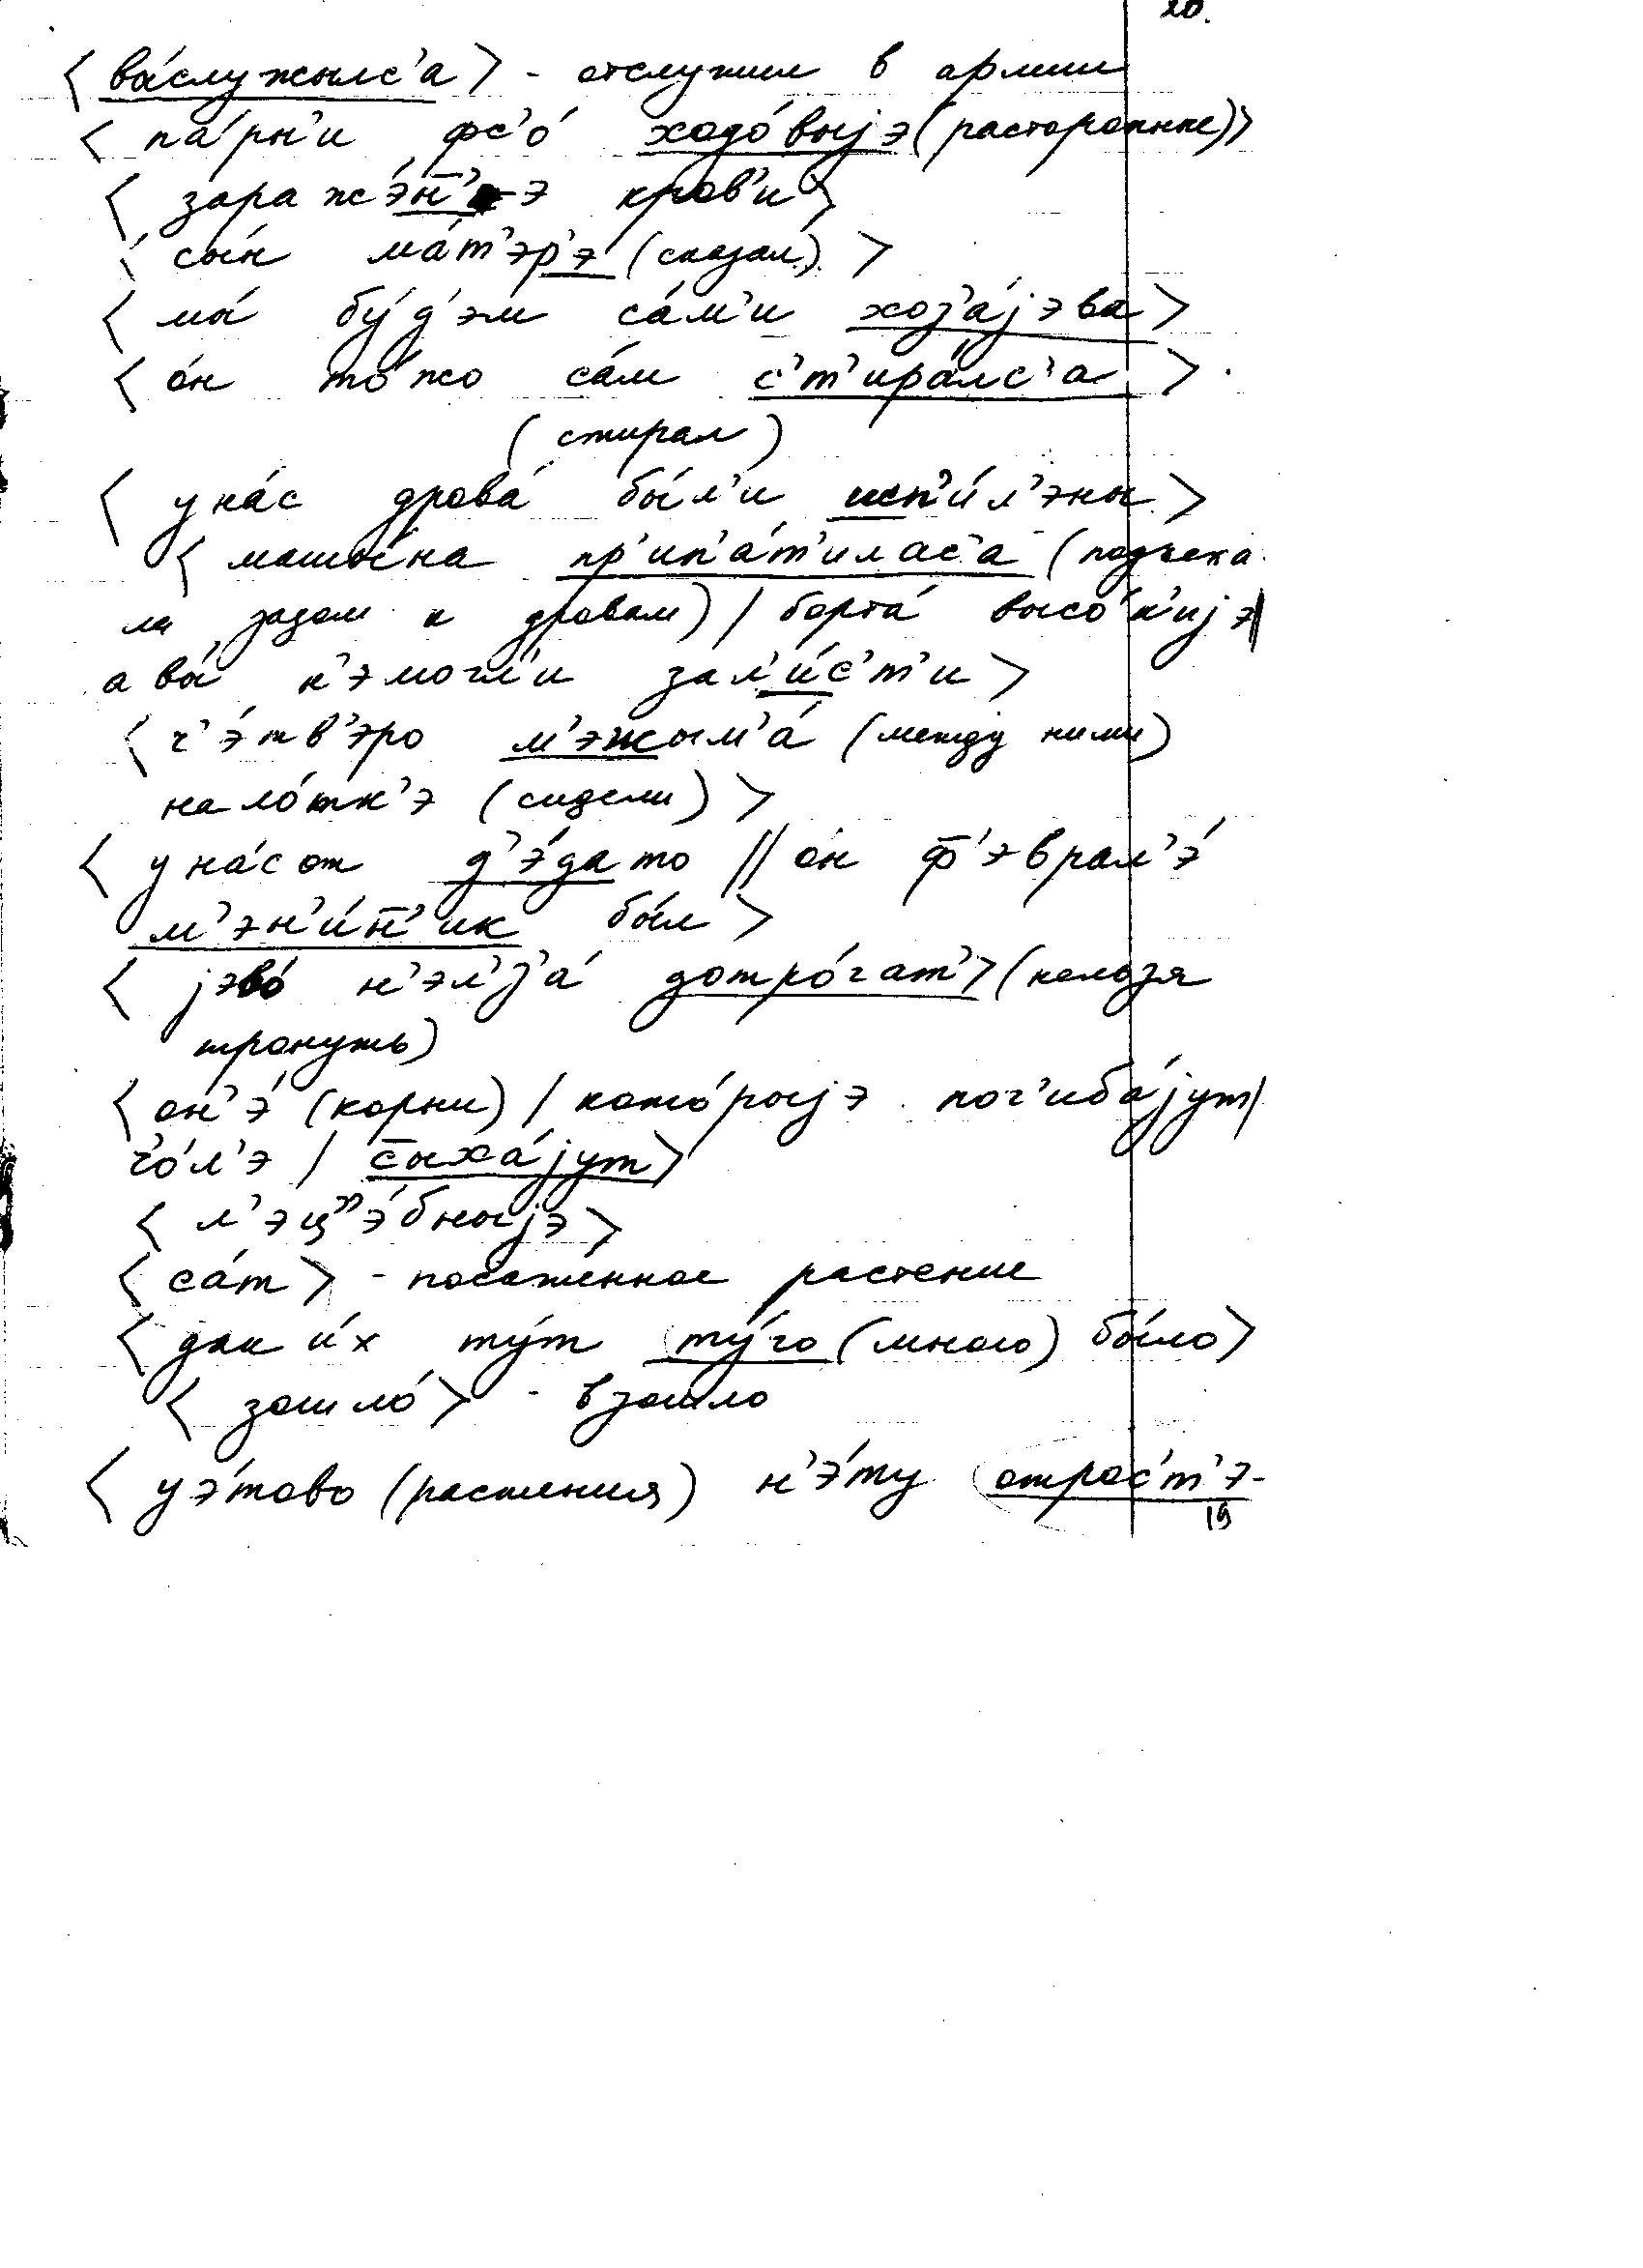 20.
⟨вы́служылс'а⟩ - отслужил в армии
⟨па́рн'и фс'о́ ходо́выjэ (расторопные)⟩
⟨зараже́н̄'э кров'и⟩
⟨сы́н ма́т'эр'э (сказал)⟩
⟨мы́ бу́д'эм са́м'и хоз'а́jэва⟩
⟨о́н то́жо са́м с'т'ира́лс'а⟩.
(стирал)
⟨у на́с дрова́ бы́л'и исп'и́л'эны⟩
⟨машы́на пр'ип'а́т'илас'а (подъеха-
ла задом к дровам) / борта́ высо́к'иjэ/
а вы́ н'э могл'и́ зал'и́с'т'и⟩
⟨ч'э́тв'эро м'эжым'а́ (между ними)
на ло́тк'э (сидели)⟩
⟨у на́с от д'э́да то // о́н ф̄'эврал'э́
м'эн'и́н̄'ик бы́л⟩
⟨jэво́ н'эл'з'а́ дотро́гат'⟩ (нельзя
тронуть)
⟨он'э́ (корни) / кото́рыjэ пог'иба́jут/
ч'о́л'э / с̄ыха́jут⟩
⟨л'эц''э́бныjэ⟩
⟨са́т⟩ - посаженное растение
⟨дак и́х ту́т ту́го (много) бы́ло⟩
⟨зошло́⟩ - взошло
⟨у э́тово (растения) н'э́ту отрос'т'э-
19